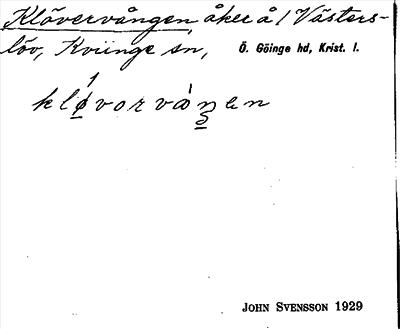 Klövervången, åker å 1 Västers-
löv, Kviinge sn, Ö. Göinge hd, Krist. l.
kløvorvaŋen
JOHN SVENSSON 1929